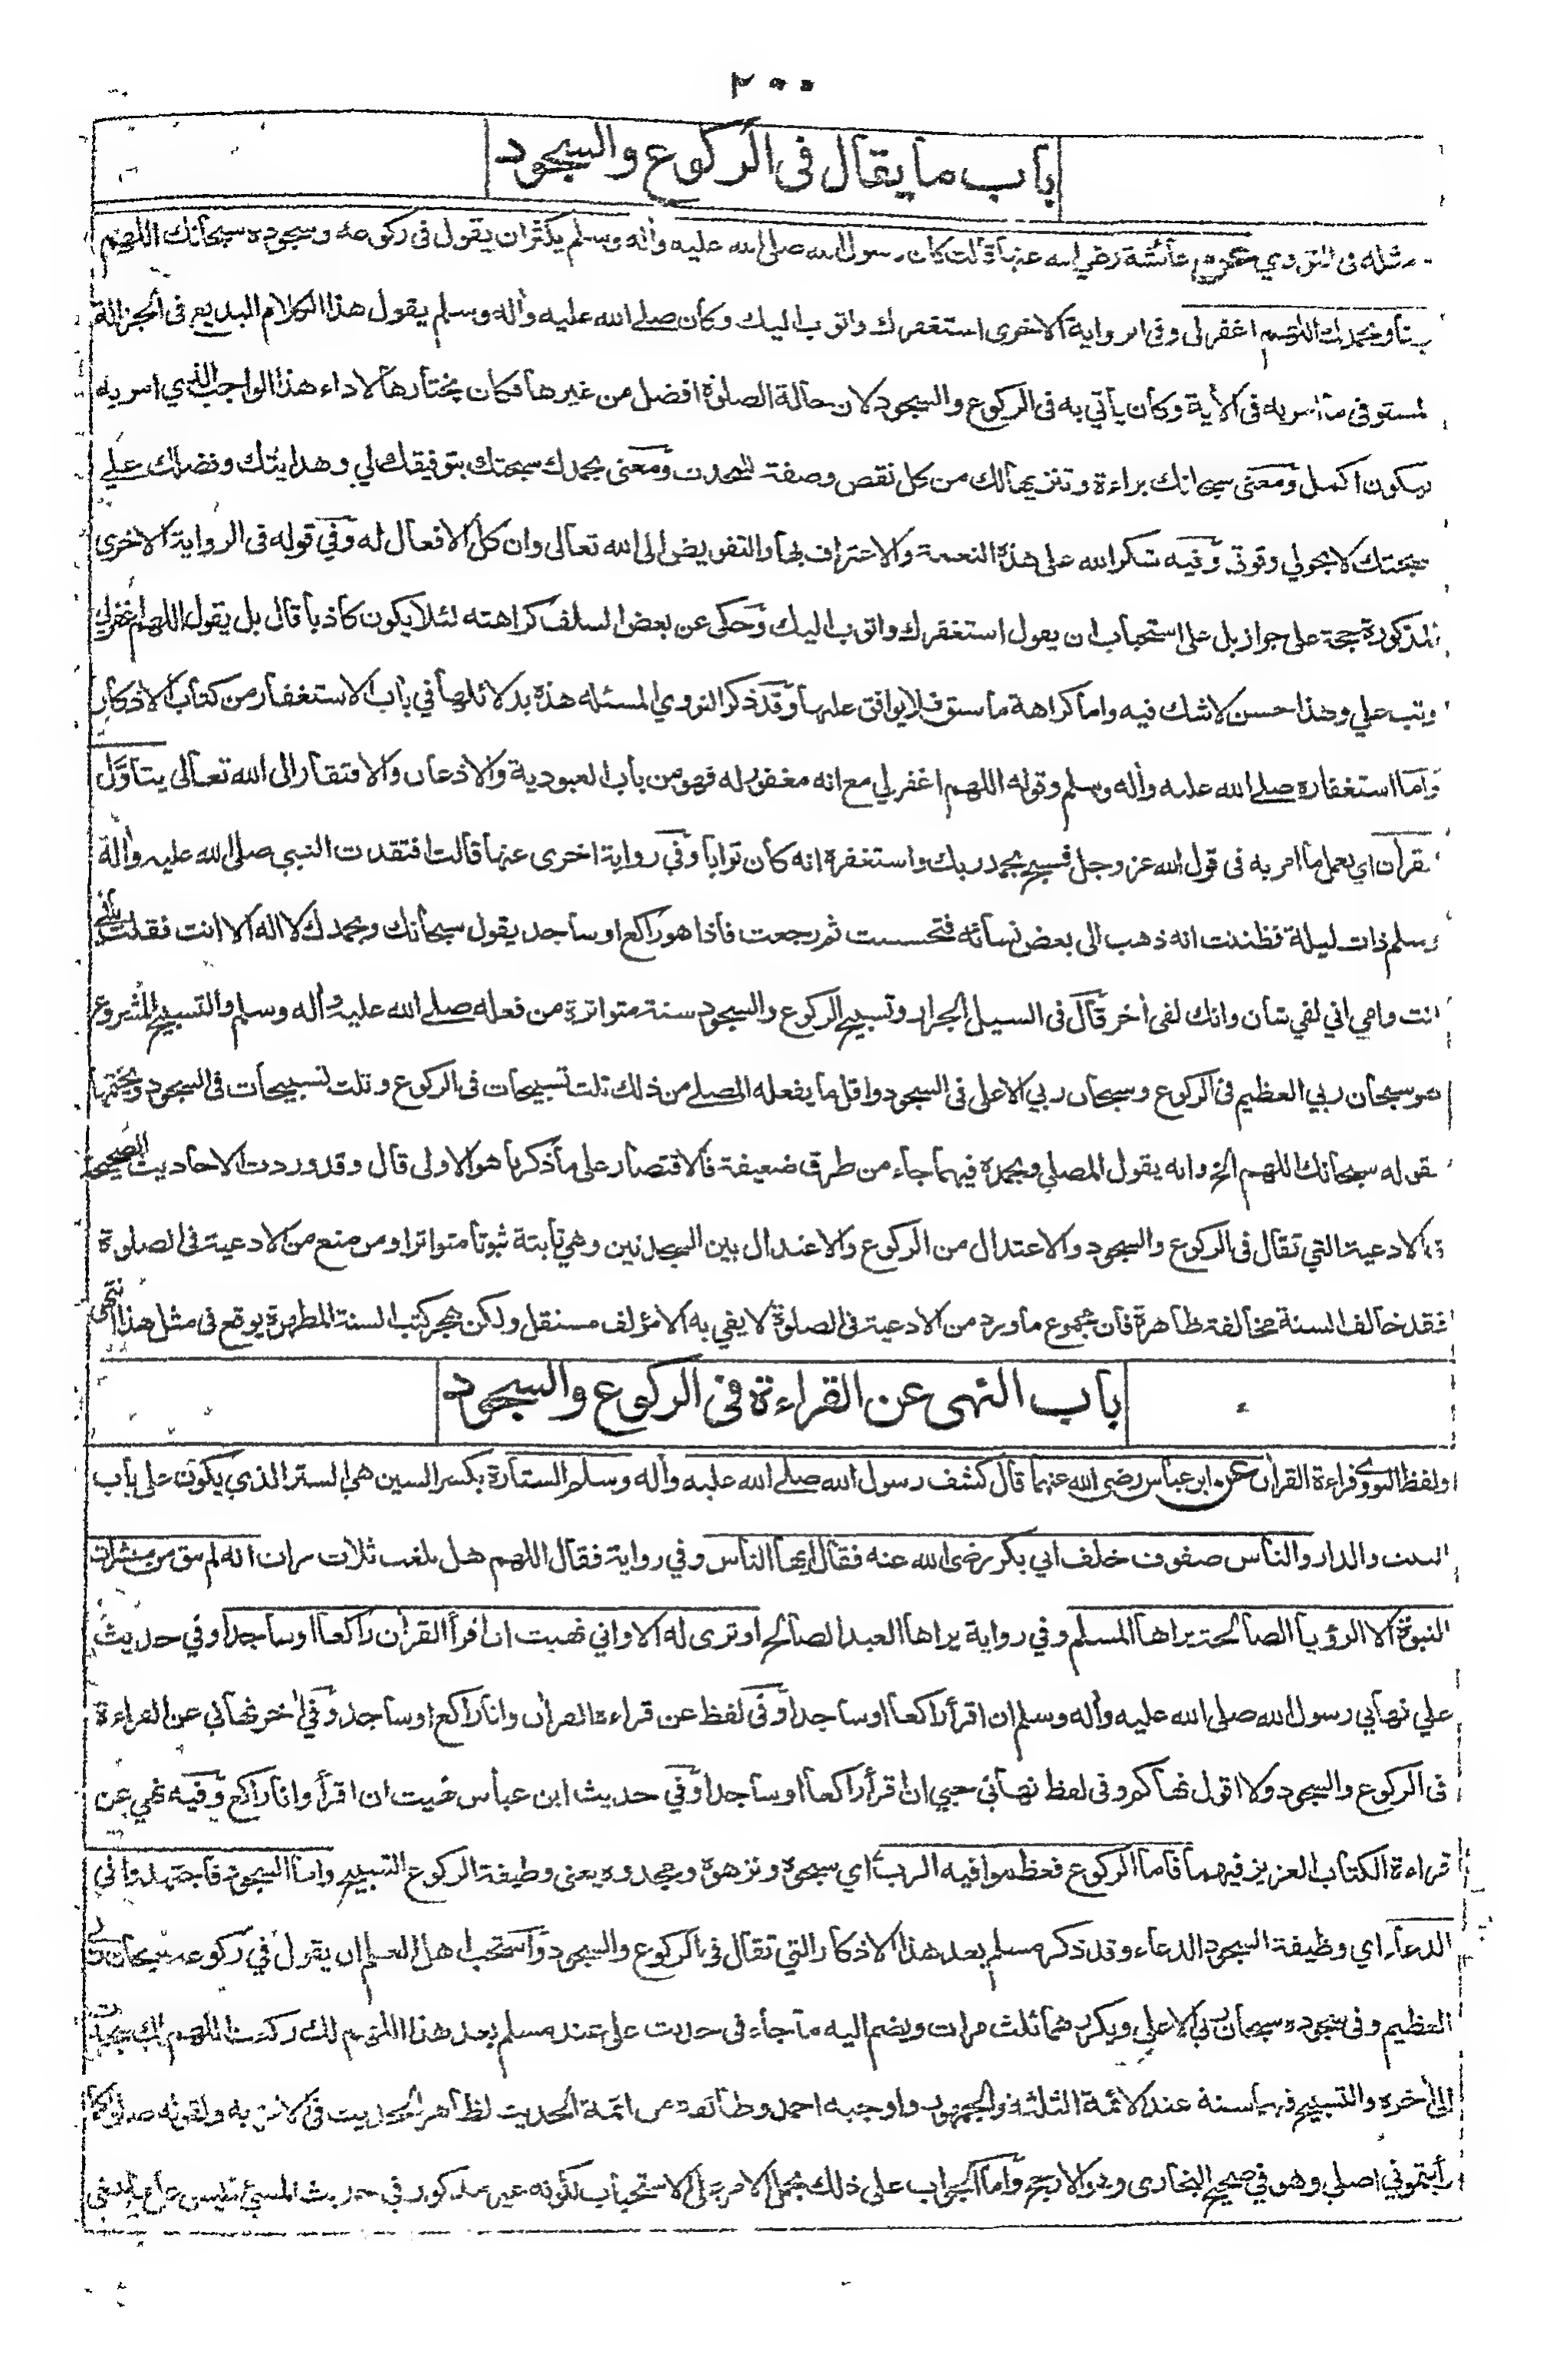 ٢٠٠
باب ما يقال فى الركوع والسجود
مثله فى النووي عن عائشة رضي الله عنها قالت كان رسول الله صلى الله عليه وأله وسلم يكثر ان يقول فى ركوعه وسجوده سبحانك اللهم
ربنا وبحمدك اللهم اغفر لى وفى الرواية الاخرى استغفرك واتوب اليك وكان صلے الله عليه وأله وسلم يقول هذا الكلام البديع فى الجزالة
المستوفى ما امر به فى الأية وكان يأتي به فى الركوع والسجود لان حالة الصلوة افضل من غيرها فكان يختارها لاداء هذا الواجب الذي امر به
ليكون اكمل ومعنى سبحانك براءة وتنزيها لك من كل نقص وصفة للمحدث ومعنى بحمدك سبحتك بتوفيقك لي وهدايتك وفضلك علے
سبحتك لا بحولي وقوتي وفيه شكر الله على هذه النعمة والاعتراف بها والتفويض الى الله تعالى وان كل الافعال له وفي قوله فى الرواية الاخرى
المذكورة حجة على جواز بل على استحباب ان يقول استغفرك واتوب اليك وحكى عن بعض السلف كراهته لئلا يكون كاذبا قال بل يقول اللهم اغفر لي
وتب علي وهذا حسن لا شك فيه واما كراهة ما سبق فلا يوافق عليها وقد ذكر النووي المسئله هذه بدلائلها في باب الاستغفار من كتاب الاذكار
واما استغفاره صلے الله عليه وأله وسلم وقوله اللهم اغفر لي مع انه مغفور له فهو من باب العبودية والاذعان والافتقار الى الله تعالى يتأوّل
القرأن اي يعمل ما امر به فى قول الله عز وجل فسبح بحمد ربك واستغفره انه كان توابا وفي رواية اخرى عنها قالت افتقدت النبي صلى الله عليه وألة
وسلم ذات ليلة فظننت انه ذهب الى بعض نسائه فتحسست ثم رجعت فاذا هو راكع او ساجد يقول سبحانك وبحمدك لا اله الا انت فقلت بابي
انت وامي اني لفي شان وانك لفى أخر قال فى السيل الجرار وتسبيح الركوع والسجود سنة متواترة من فعله صلے الله عليه وأله وسلم والتسبيح المشروع
هو سبحان ربي العظيم فى الركوع وسبحان ربي الاعلى فى السجود واقل ما يفعله المصلے من ذلك ثلث تسبيحات فى الركوع وثلث تسبيحات فى السجود ويختمها
بقوله سبحانك اللهم الخ وانه يقول المصلي وبحمده فيهما جاء من طرق ضعيفة فالاقتصار على ما ذكرنا هو الاولى قال وقد وردت الاحاديث الصحيحة
الادعية التي تقال فى الركوع والسجود والاعتدال من الركوع والاعتدال بين السجدتين وهي ثابتة ثبوتا متواترا ومن منع من الادعية فى الصلوة
فقد خالف السنة مخالفة ظاهرة فان مجموع ما ورد من الادعية فى الصلوة لا يفي به الا مؤلف مستقل ولكن هجر كتب السنة المطهرة يوقع فى مثل هذا انتهى
باب النهى عن القراءة فى الركوع والسجود
ولفظ النووي قراءة القرأن عن ابن عباس رضى الله عنهما قال كشف رسول الله صلے الله عليه وأله وسلم الستارة بكسر السين هي الستر الذي يكون على باب
البيت والدار والناس صفوف خلف ابي بكر رضى الله عنه فقال ايها الناس وفي رواية فقال اللهم هل بلغت ثلاث مرات انه لم يبق من مبشرات
النبوة الا الرؤيا الصالحة يراها المسلم وفي رواية يراها العبد الصالح او ترى له الا واني نهيت ان اقرأ القرأن راكعا او ساجدا وفي حديث
علي نهاني رسول الله صلى الله عليه وأله وسلم ان اقرأ راكعا او ساجدا وفى لفظ عن قراءة القرأن وانا راكع او ساجد وفي أخر نهاني عن القراءة
فى الركوع والسجود ولا اقول نهاكم وفى لفظ نهاني حبي ان اقرأ راكعا او ساجدا وفي حديث ابن عباس نهيت ان اقرأ وانا راكع وفيه نهي عن
قراءة الكتاب العزيز فيهما فاما الركوع فعظموا فيه الرب اي سبحوه ونزهوه ومجدوه يعنى وظيفة الركوع التسبيح واما السجود فاجتهدوا فى
الدعاء اي وظيفة السجود الدعاء وقد ذكر مسلم بعد هذا الاذكار التي تقال فى الركوع والسجود واستحب اهل العلم ان يقول في ركوعه سبحان ربي
العظيم وفى سجوده سبحان ربي الاعلى ويكررهما ثلث مرات ويضم اليه ما جاء فى حديث علي عند مسلم بعد هذا اللهم لك ركعت اللهم لك سجدت
الى أخره والتسبيح فيهما سنة عند الائمة الثلثة والجمهور واوجبه احمد وطائفة من ائمة الحديث لظاهر الحديث فى الامر به ولقوله صلوا كما
رأيتموني اصلي وهو في صحيح البخارى وهو الارجح واما الجواب على ذلك بحمل الامر على الاستحباب لكونه غير مذكور في حديث المسيئ فليس